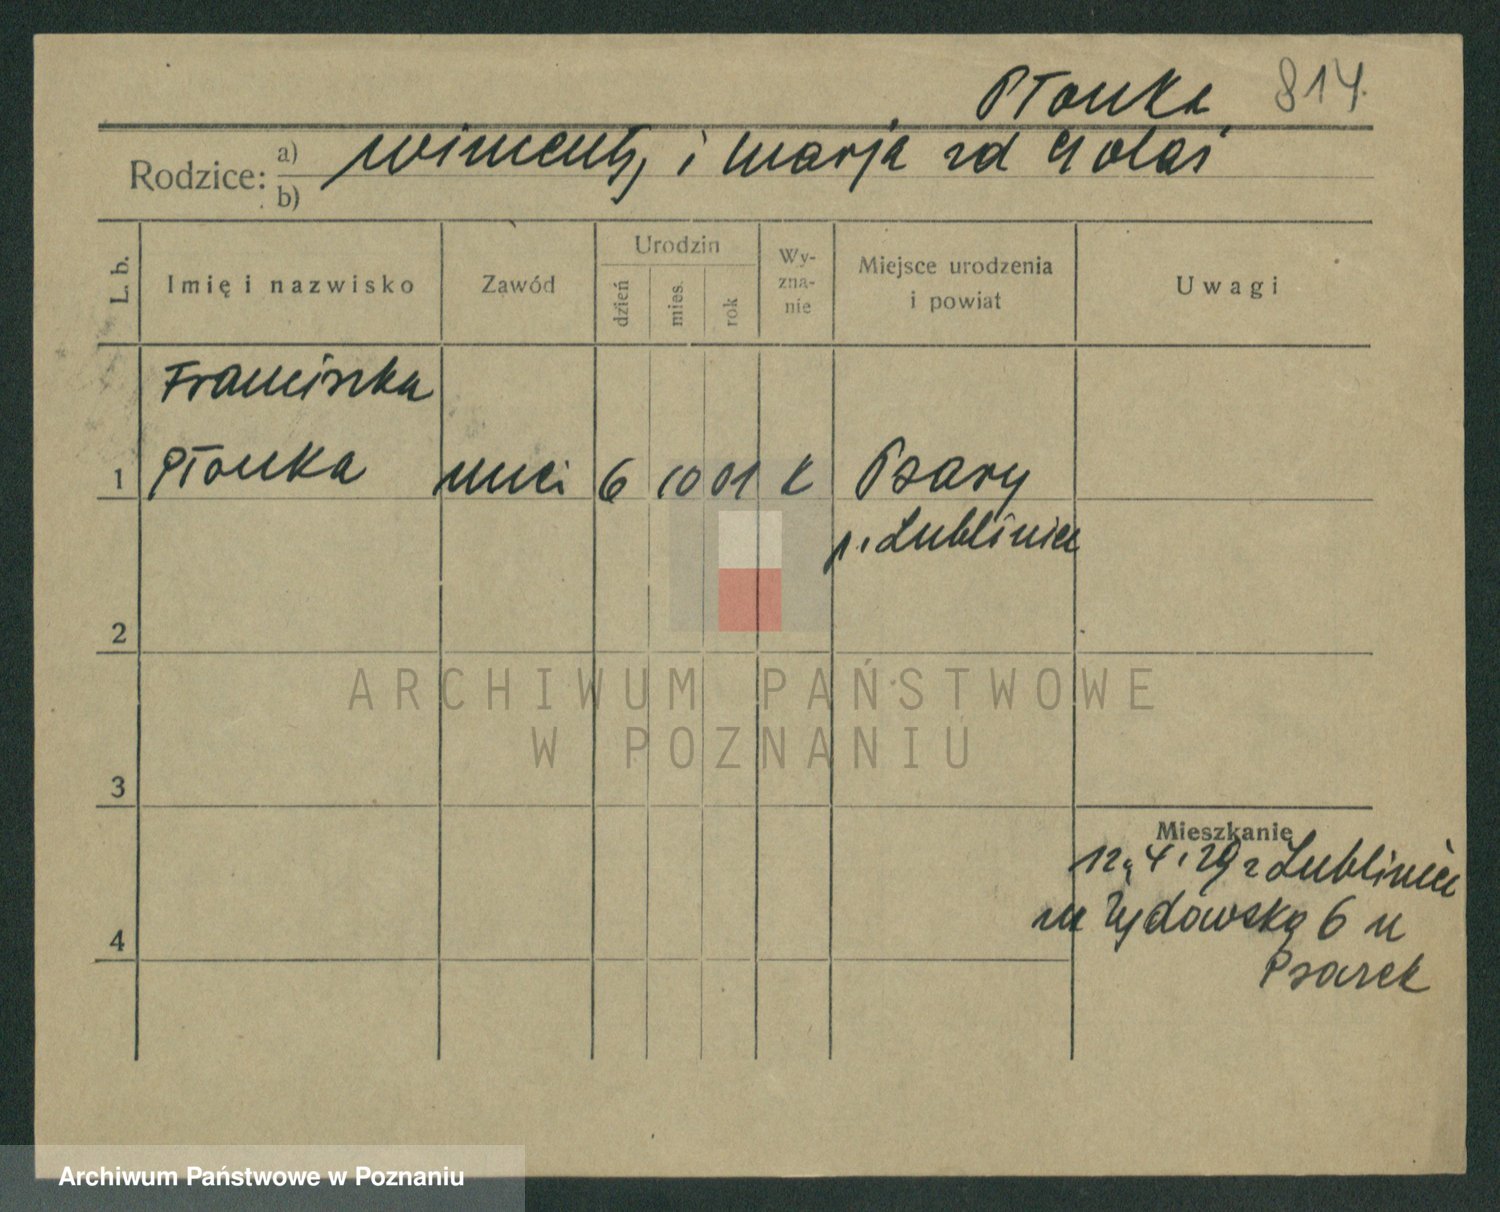 Płonka 814.
Rodzice: a) b) Wincenty i Marja zd Golaś
L. b.
Imię i nazwisko
Zawód
Urodzin
dzień
mies.
rok
Wy-
zna-
nie
Miejsce urodzenia
i powiat
Uwagi
Franciszka
1 Płonka 6 10 01 K Psary
p. Lubliniec
2
3
4
Mieszkanie
12.4.29 z Lubliniec
na Żydowską 6 u
Psarek
ARCHIWUM PAŃSTWOWE
W POZNANIU
Archiwum Państwowe w Poznaniu